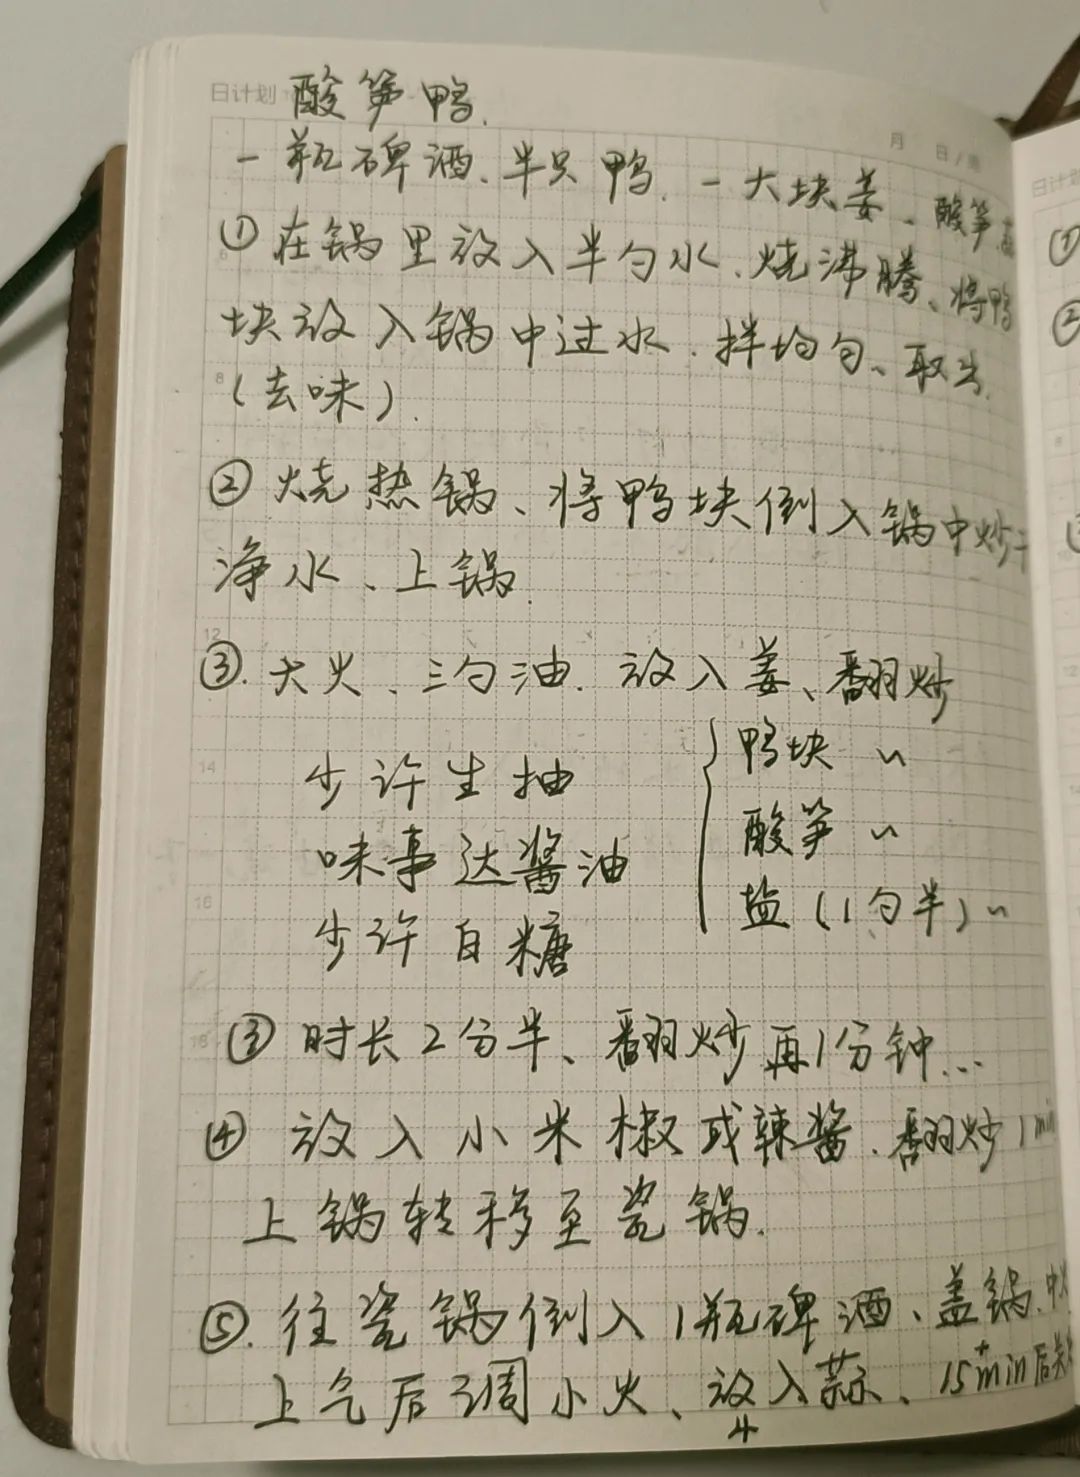 日计划
月 日/周
酸笋鸭.
一瓶碑酒、半只鸭. 一大块姜、酸笋
①在锅里放入半勺水、烧沸腾、将鸭
块放入锅中过水. 拌均匀、取出.
(去味).
② 烧热锅、将鸭块倒入锅中炒干
净水、上锅.
③. 大火、三勺油. 放入姜、翻炒
鸭块 〃
少许生抽
酸笋 〃
味事达酱油
盐(1勺半)〃
少许白糖
③ 时长2分半、翻炒再1分钟...
④ 放入小米椒或辣酱. 翻炒1min
上锅转移至瓷锅.
⑤. 往瓷锅倒入1瓶碑酒、盖锅. 中火
上气后调小火、放入蒜、15min后关
8
12
14
16
18
日计划
①
②
8
12